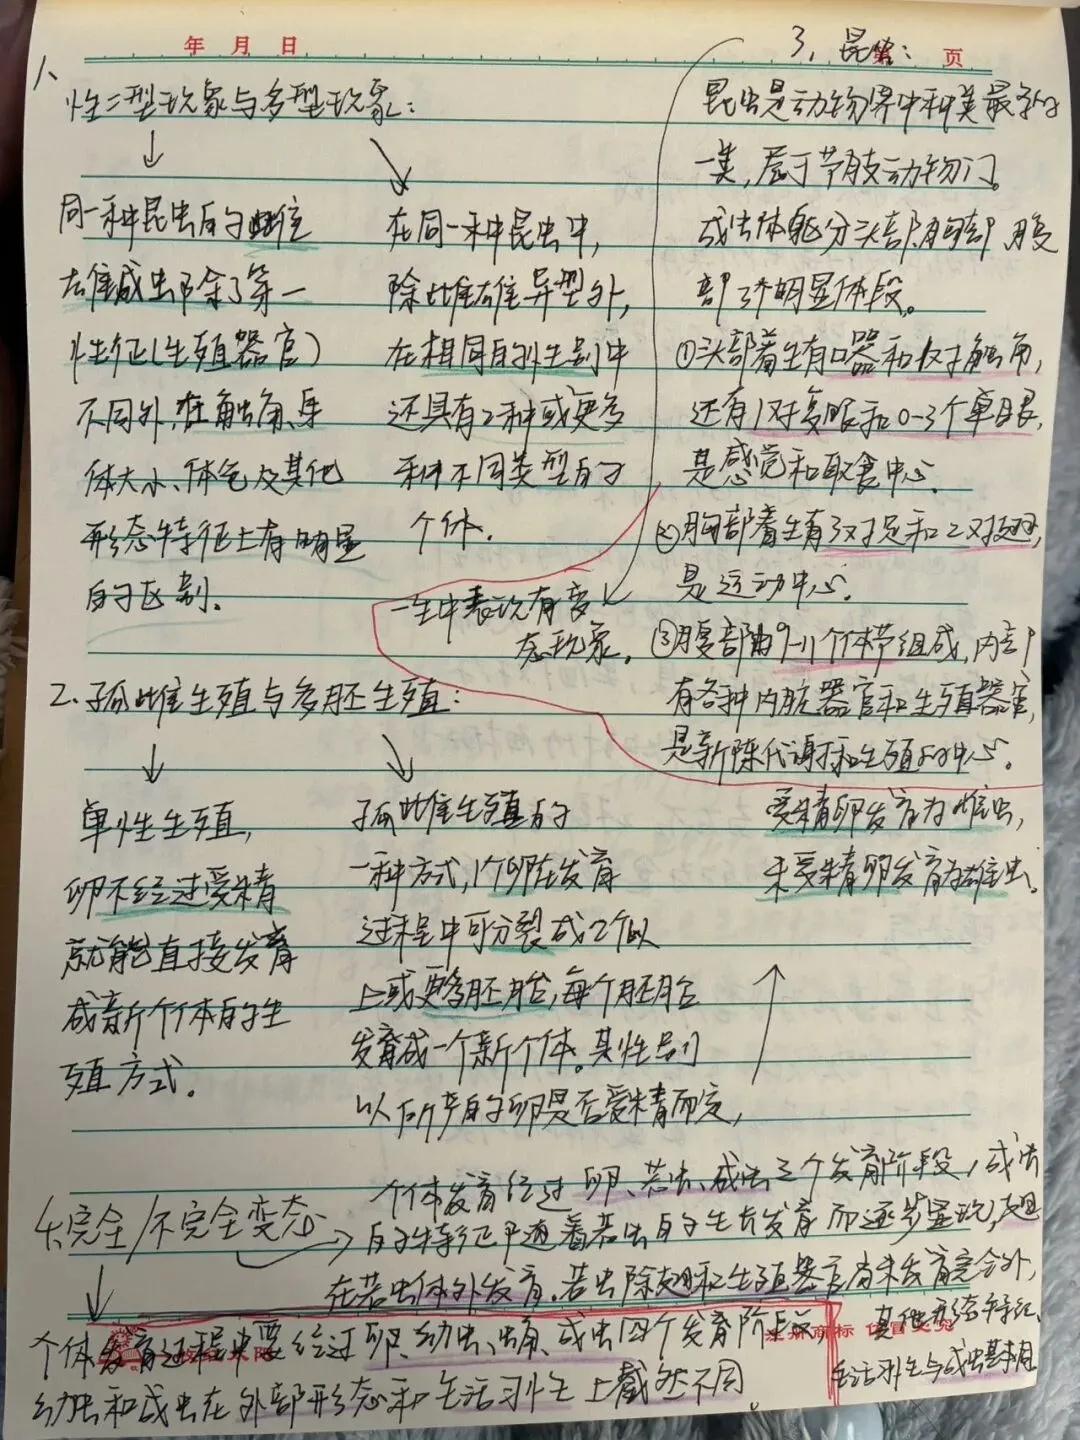 年 月 日
第 页
1、
性二型现象与多型现象:
同一种昆虫的雌性
雄成虫除了第一
性征(生殖器官)
不同外,在触角、身
体大小、体色及其他
形态特征上有明显
的区别。
在同一种昆虫中,
除雌雄异型外,
在相同的性别中
还具有2种或更多
种不同类型的
个体.
2.孤雌生殖与多胚生殖:
单性生殖,
卵不经过受精
就能直接发育
成新个体的生
殖方式.
孤雌生殖的
一种方式,1个卵在发育
过程中可分裂成2个以
上或更多胚胎,每个胚胎
发育成一个新个体。其性别
以所产的卵是否受精而定,
受精卵发育为雌虫,
未受精卵发育为雄虫。
3、昆虫:
昆虫是动物界中种类最多的
一类,属于节肢动物门。
成虫体躯分头部、胸部、腹
部3个明显体段。
①头部着生有口器和1对触角,
还有1对复眼和0-3个单眼,
是感觉和取食中心.
②胸部着生有3对足和2对翅,
是运动中心.
③腹部由9-11个体节组成,内部
有各种内脏器官和生殖器官,
是新陈代谢和生殖的中心.
一生中表现有变
态现象.
4.完全/不完全变态
个体发育经过卵、若虫、成虫三个发育阶段,成虫
的特征随着若虫的生长发育而逐步显现,翅
在若虫体外发育.若虫除翅和生殖器官尚未发育完全外,
其他形态特征、
生活习性与成虫基本相
个体发育过程中要经过卵、幼虫、蛹、成虫四个发育阶段
幼虫和成虫在外部形态和生活习性上截然不同